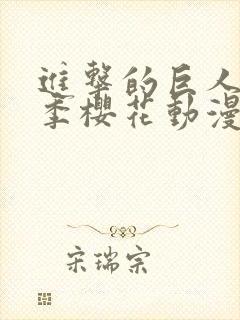 進擊的巨人
季櫻花動漫
宋瑞宗